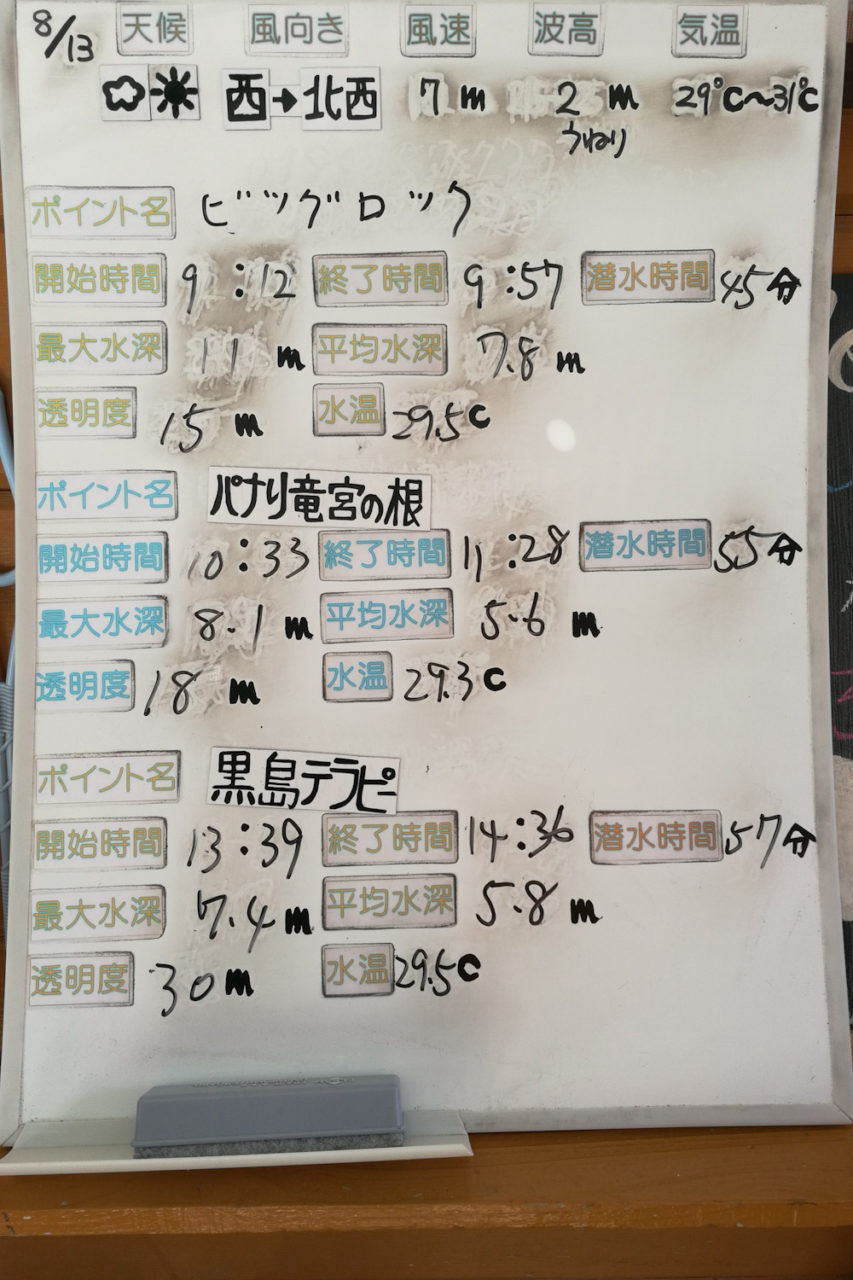 8/13 天候 風向き 風速 波高 気温
西→北西 7 m 2 m 29℃~31℃
うねり
ポイント名 ビッグロック
開始時間 9:12 終了時間 9:57 潜水時間 45分
最大水深 11 m 平均水深 7.8 m
透明度 15 m 水温 29.5℃
ポイント名 パナリ竜宮の根
開始時間 10:33 終了時間 11:28 潜水時間 55分
最大水深 8.1 m 平均水深 5.6 m
透明度 18 m 水温 29.3℃
ポイント名 黒島テラピー
開始時間 13:39 終了時間 14:36 潜水時間 57分
最大水深 7.4 m 平均水深 5.8 m
透明度 30 m 水温 29.5℃